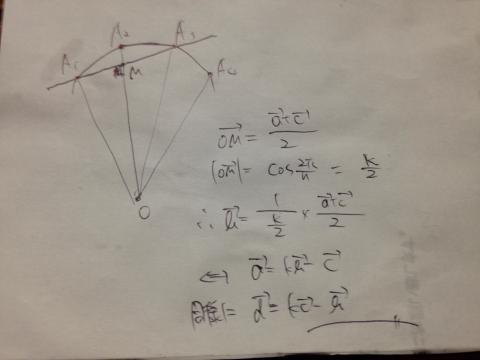 A₁ A₂ A₃ A₄
M
O
OM⃗ = (a⃗+c⃗)/2
|OM⃗| = cos 2π/n = k/2
∴ b⃗ = 1/(k/2) × (a⃗+c⃗)/2
⟺ a⃗ = kb⃗ − c⃗
同様に d⃗ = kc⃗ − b⃗